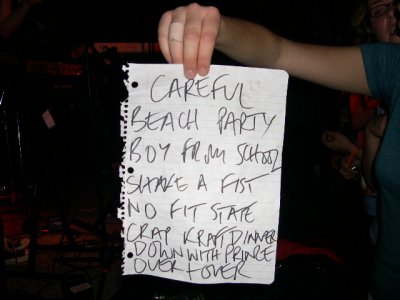 CAREFUL
BEACH PARTY
BOY FROM SCHOOL
SHAKE A FIST
NO FIT STATE
CRAP KRAFT DINNER
DOWN WITH PRINCE
OVER + OVER